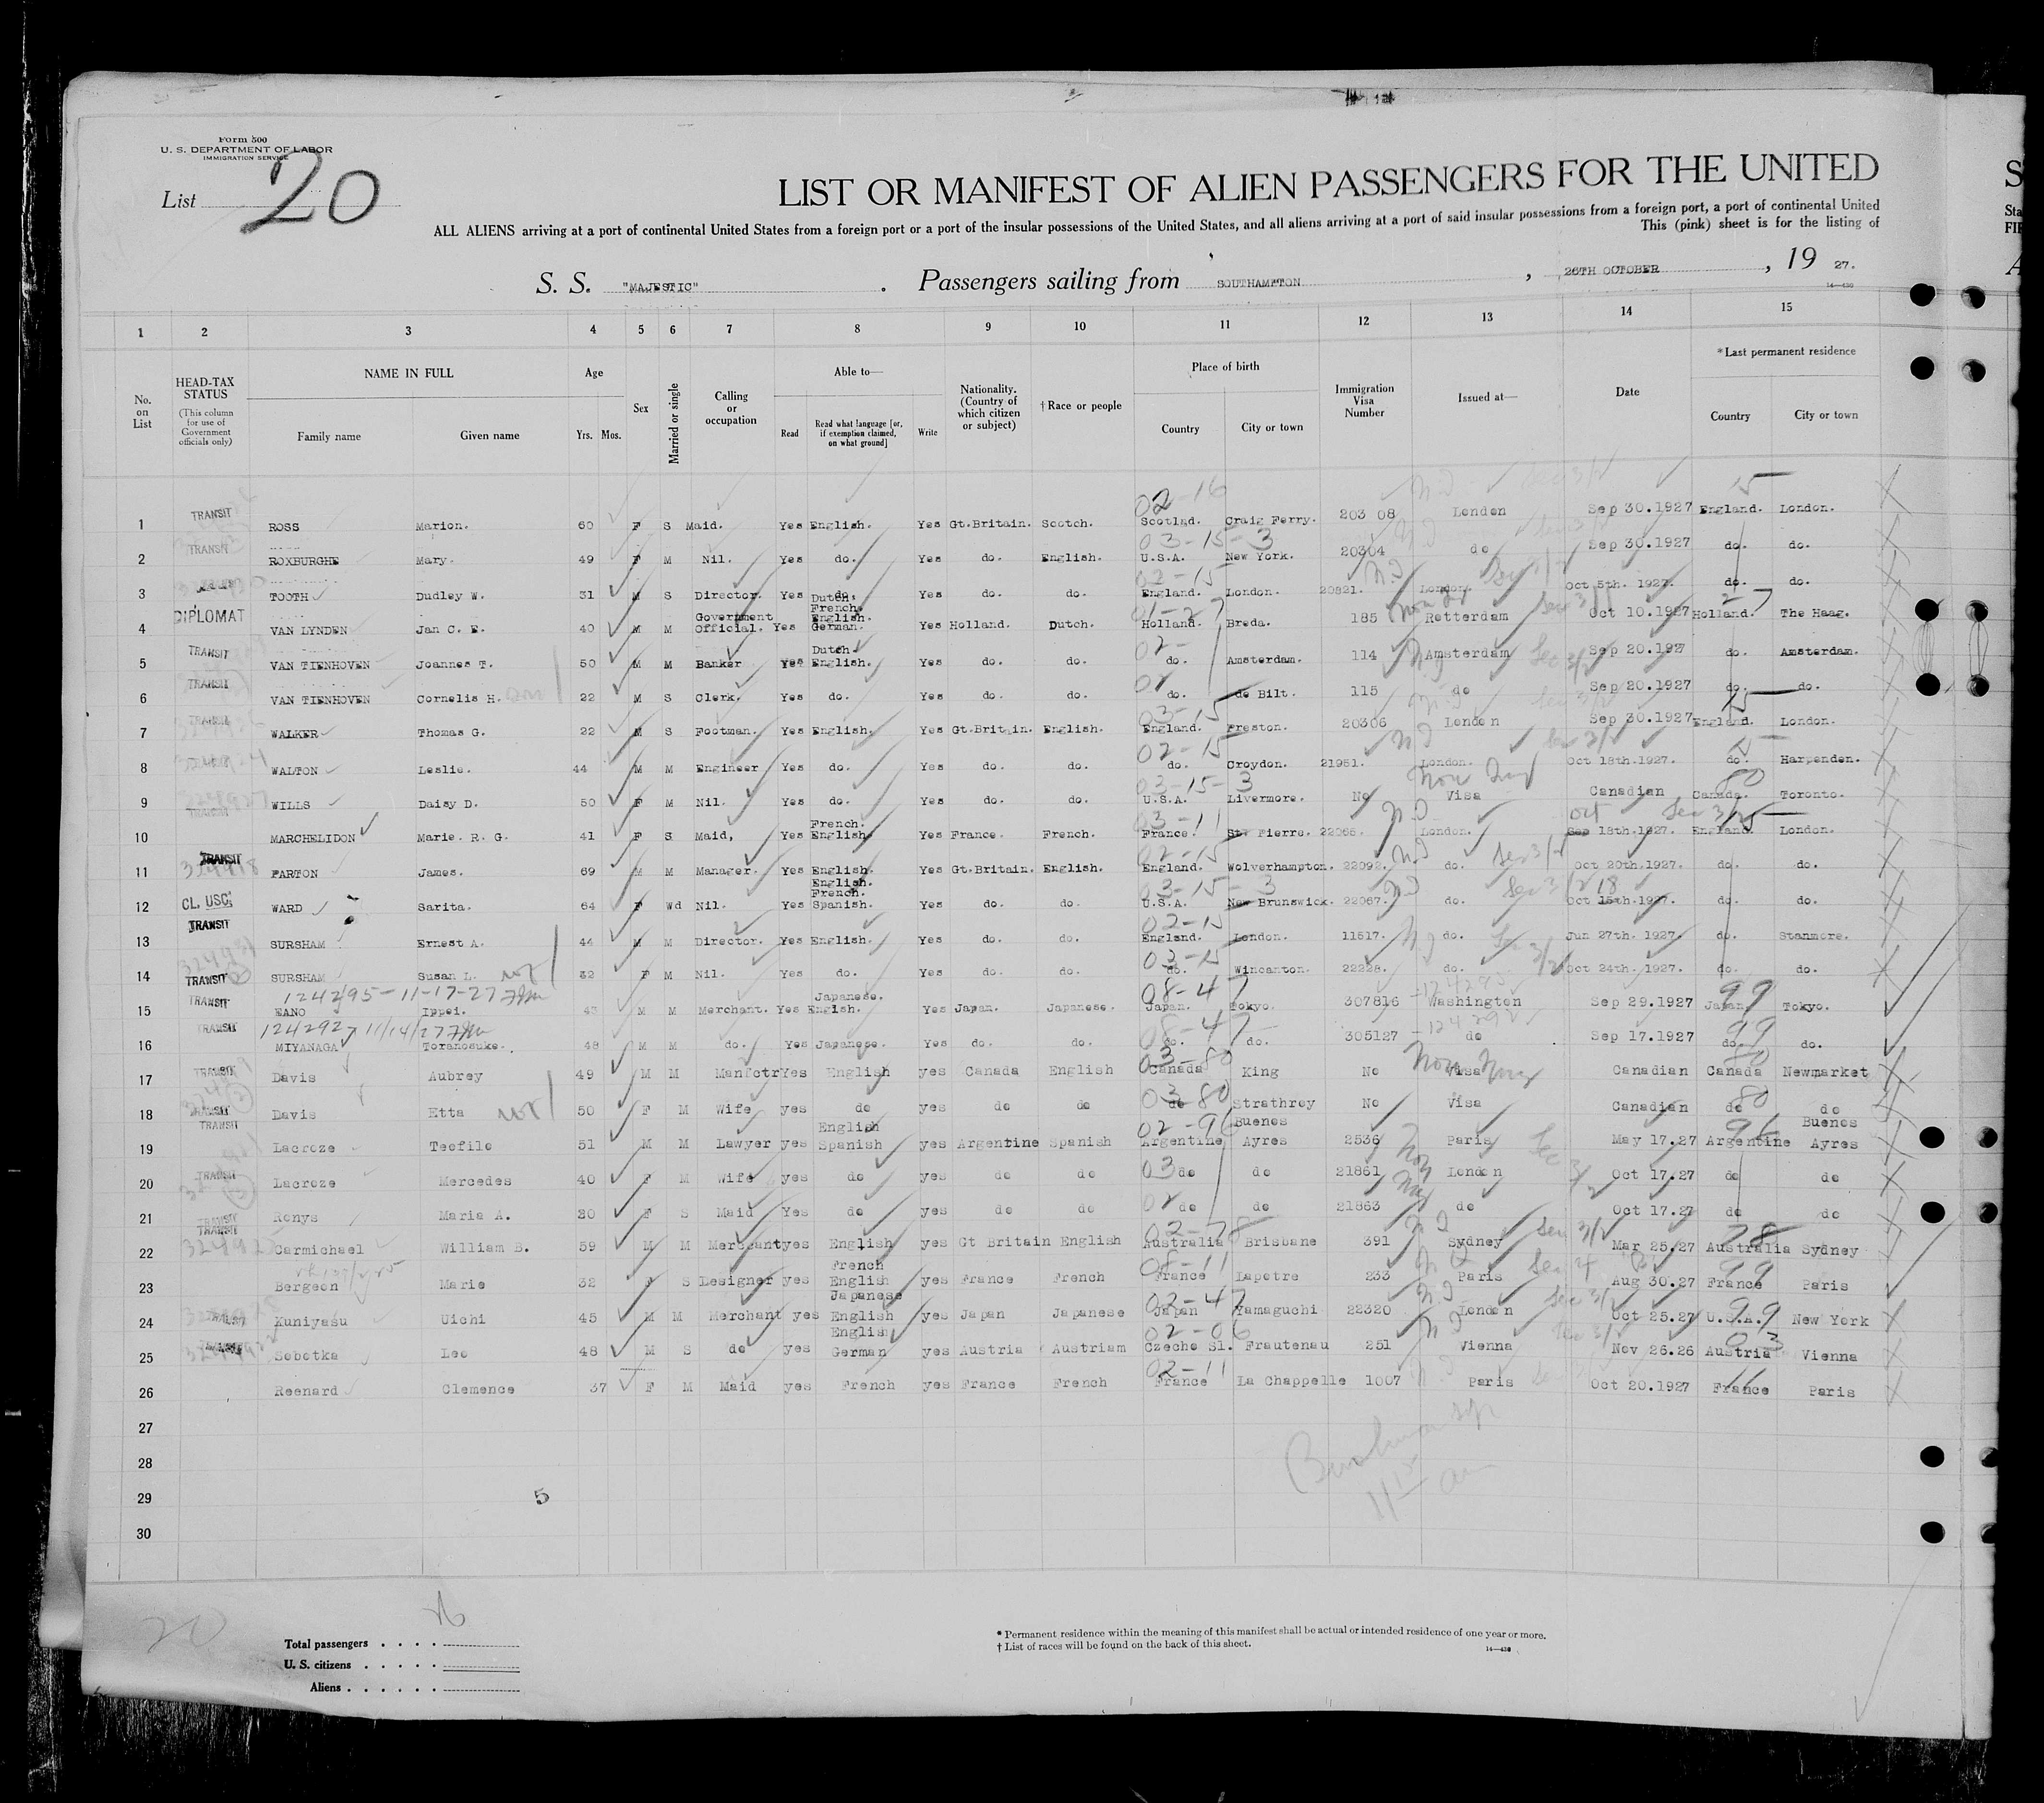 Form 500
U. S. DEPARTMENT OF LABOR
IMMIGRATION SERVICE
List 20
LIST OR MANIFEST OF ALIEN PASSENGERS FOR THE UNITED
ALL ALIENS arriving at a port of continental United States from a foreign port or a port of the insular possessions of the United States, and all aliens arriving at a port of said insular possessions from a foreign port, a port of continental United
This (pink) sheet is for the listing of
S. S. "MAJESTIC" . Passengers sailing from SOUTHAMPTON , 26TH OCTOBER , 19 27.
14—430
1 2 3 4 5 6 7 8 9 10 11 12 13 14 15
No. on List
HEAD-TAX STATUS
(This column for use of Government officials only)
NAME IN FULL
Family name Given name
Age
Yrs. Mos.
Sex
Married or single
Calling or occupation
Able to—
Read
Read what language [or, if exemption claimed, on what ground]
Write
Nationality. (Country of which citizen or subject)
† Race or people
Place of birth
Country City or town
Immigration Visa Number
Issued at—
Date
*Last permanent residence
Country City or town
02-16 15
1 TRANSIT ROSS Marion. 60 F S Maid. Yes English. Yes Gt.Britain. Scotch. Scotlnd. Craig Ferry. 203 08 London Sep 30.1927 England. London.
03-15-3
2 TRANSIT ROXBURGHE Mary. 49 F M Nil. Yes do. Yes do. English. U.S.A. New York. 20304 do Sep 30.1927 do. do.
02-15
3 TOOTH Dudley W. 31 M S Director. Yes do. Yes do. do. England. London. 20821. London. Oct 5th. 1927. do. do.
Dutch. French. English. German.
4 DIPLOMAT VAN LYNDEN Jan C. E. 40 M M Government Official. Yes Yes Holland. Dutch. Holland. Breda. 185 Rotterdam Oct 10.1927 Holland. The Haag.
Dutch.
5 TRANSIT VAN TIENHOVEN Joannes T. 50 M M Banker Yes English. Yes do. do. do. Amsterdam. 114 Amsterdam Sep 20.192 do. Amsterdam.
6 TRANSIT VAN TIENHOVEN Cornelis H. 22 M S Clerk. Yes do. Yes do. do. do. de Bilt. 115 do Sep 20.1927 do. do.
03-15 15
7 TRANSIT WALKER Thomas G. 22 M S Footman. Yes English. Yes Gt.Britain. English. England. Preston. 20306 London Sep 30.1927 England. London.
02-15 15
8 WALTON Leslie. 44 M M Engineer Yes do. Yes do. do. do. Croydon. 21951. London. Oct 18th.1927. do. Harpenden.
03-15-3 80
9 WILLS Daisy D. 50 F M Nil. Yes do. Yes do. do. U.S.A. Livermore. No Visa Canadian Canada. Toronto.
03-11 Oct 15
French.
10 MARCHELIDON Marie. R. G. 41 F S Maid, Yes English Yes France. French. France. St. Pierre. 22066. London. Sep 18th.1927. England. London.
02-15
11 TRANSIT PARTON James. 69 M M Manager. Yes English. Yes Gt.Britain. English. England. Wolverhampton. 22092. do. Oct 20th.1927. do. do.
03-15-3 18
English. French.
12 CL. USC. WARD Sarita. 64 F Wd Nil. Yes Spanish. Yes do. do. U.S.A. New Brunswick. 22067. do. Oct 15th.1927. do. do.
02-15
13 TRANSIT SURSHAM Ernest A. 44 M M Director. Yes English. Yes do. do. England. London. 11517. do. Jun 27th. 1927. do. Stanmore.
03-15
14 TRANSIT SURSHAM Susan L. 32 F M Nil. Yes do. Yes do. do. do. Wincanton. 22228. do. Oct 24th.1927. do. do.
124295-11-17-27 08-47 99
Japanese.
15 TRANSIT EANO Ippei. 43 M M Merchant. Yes English. Yes Japan. Japanese. Japan. Tokyo. 307816 Washington Sep 29.1927 Japan Tokyo.
124292 11/14/27 08-47 99
16 TRANSIT MIYANAGA Toranosuke. 48 M M do. Yes Japanese. Yes do. do. do. do. 305127 do Sep 17.1927 do. do.
03-80 80
17 TRANSIT Davis Aubrey 49 M M Manfctr Yes English yes Canada English Canada King No Visa Canadian Canada Newmarket
03-80 80
18 TRANSIT Davis Etta 50 F M Wife yes do yes do do do Strathroy No Visa Canadian do do
02-96 96
English Buenos Buenos
19 TRANSIT Lacroze Teofilo 51 M M Lawyer yes Spanish yes Argentine Spanish Argentine Ayres 2536 Paris May 17.27 Argentine Ayres
03
20 TRANSIT Lacroze Mercedes 40 F M Wife yes do yes do do do do 21861 London Oct 17.27 do do
21 TRANSIT Ronys Maria A. 20 F S Maid Yes do yes do do do do 21863 do Oct 17.27 do do
02-78 78
22 TRANSIT Carmichael William B. 59 M M Merchant yes English yes Gt Britain English Australia Brisbane 391 Sydney Mar 25.27 Australia Sydney
08-11 99
French
23 Bergeon Marie 32 F S Designer yes English yes France French France Lapotre 233 Paris Aug 30.27 France Paris
02-47 99
Japanese
24 Kuniyasu Uichi 45 M M Merchant yes English yes Japan Japanese Japan Yamaguchi 22320 London Oct 25.27 U.S.A. New York
02-06 03
English
25 Sobotka Leo 48 M S do yes German yes Austria Austriam Czecho Sl. Frautenau 251 Vienna Nov 26.26 Austria Vienna
02-11 11
26 Reenard Clemence 37 F M Maid yes French yes France French France La Chappelle 1007 Paris Oct 20.1927 France Paris
27
28
29 5
30
11 am
20
Total passengers
U. S. citizens
Aliens
* Permanent residence within the meaning of this manifest shall be actual or intended residence of one year or more.
† List of races will be found on the back of this sheet.
14—430